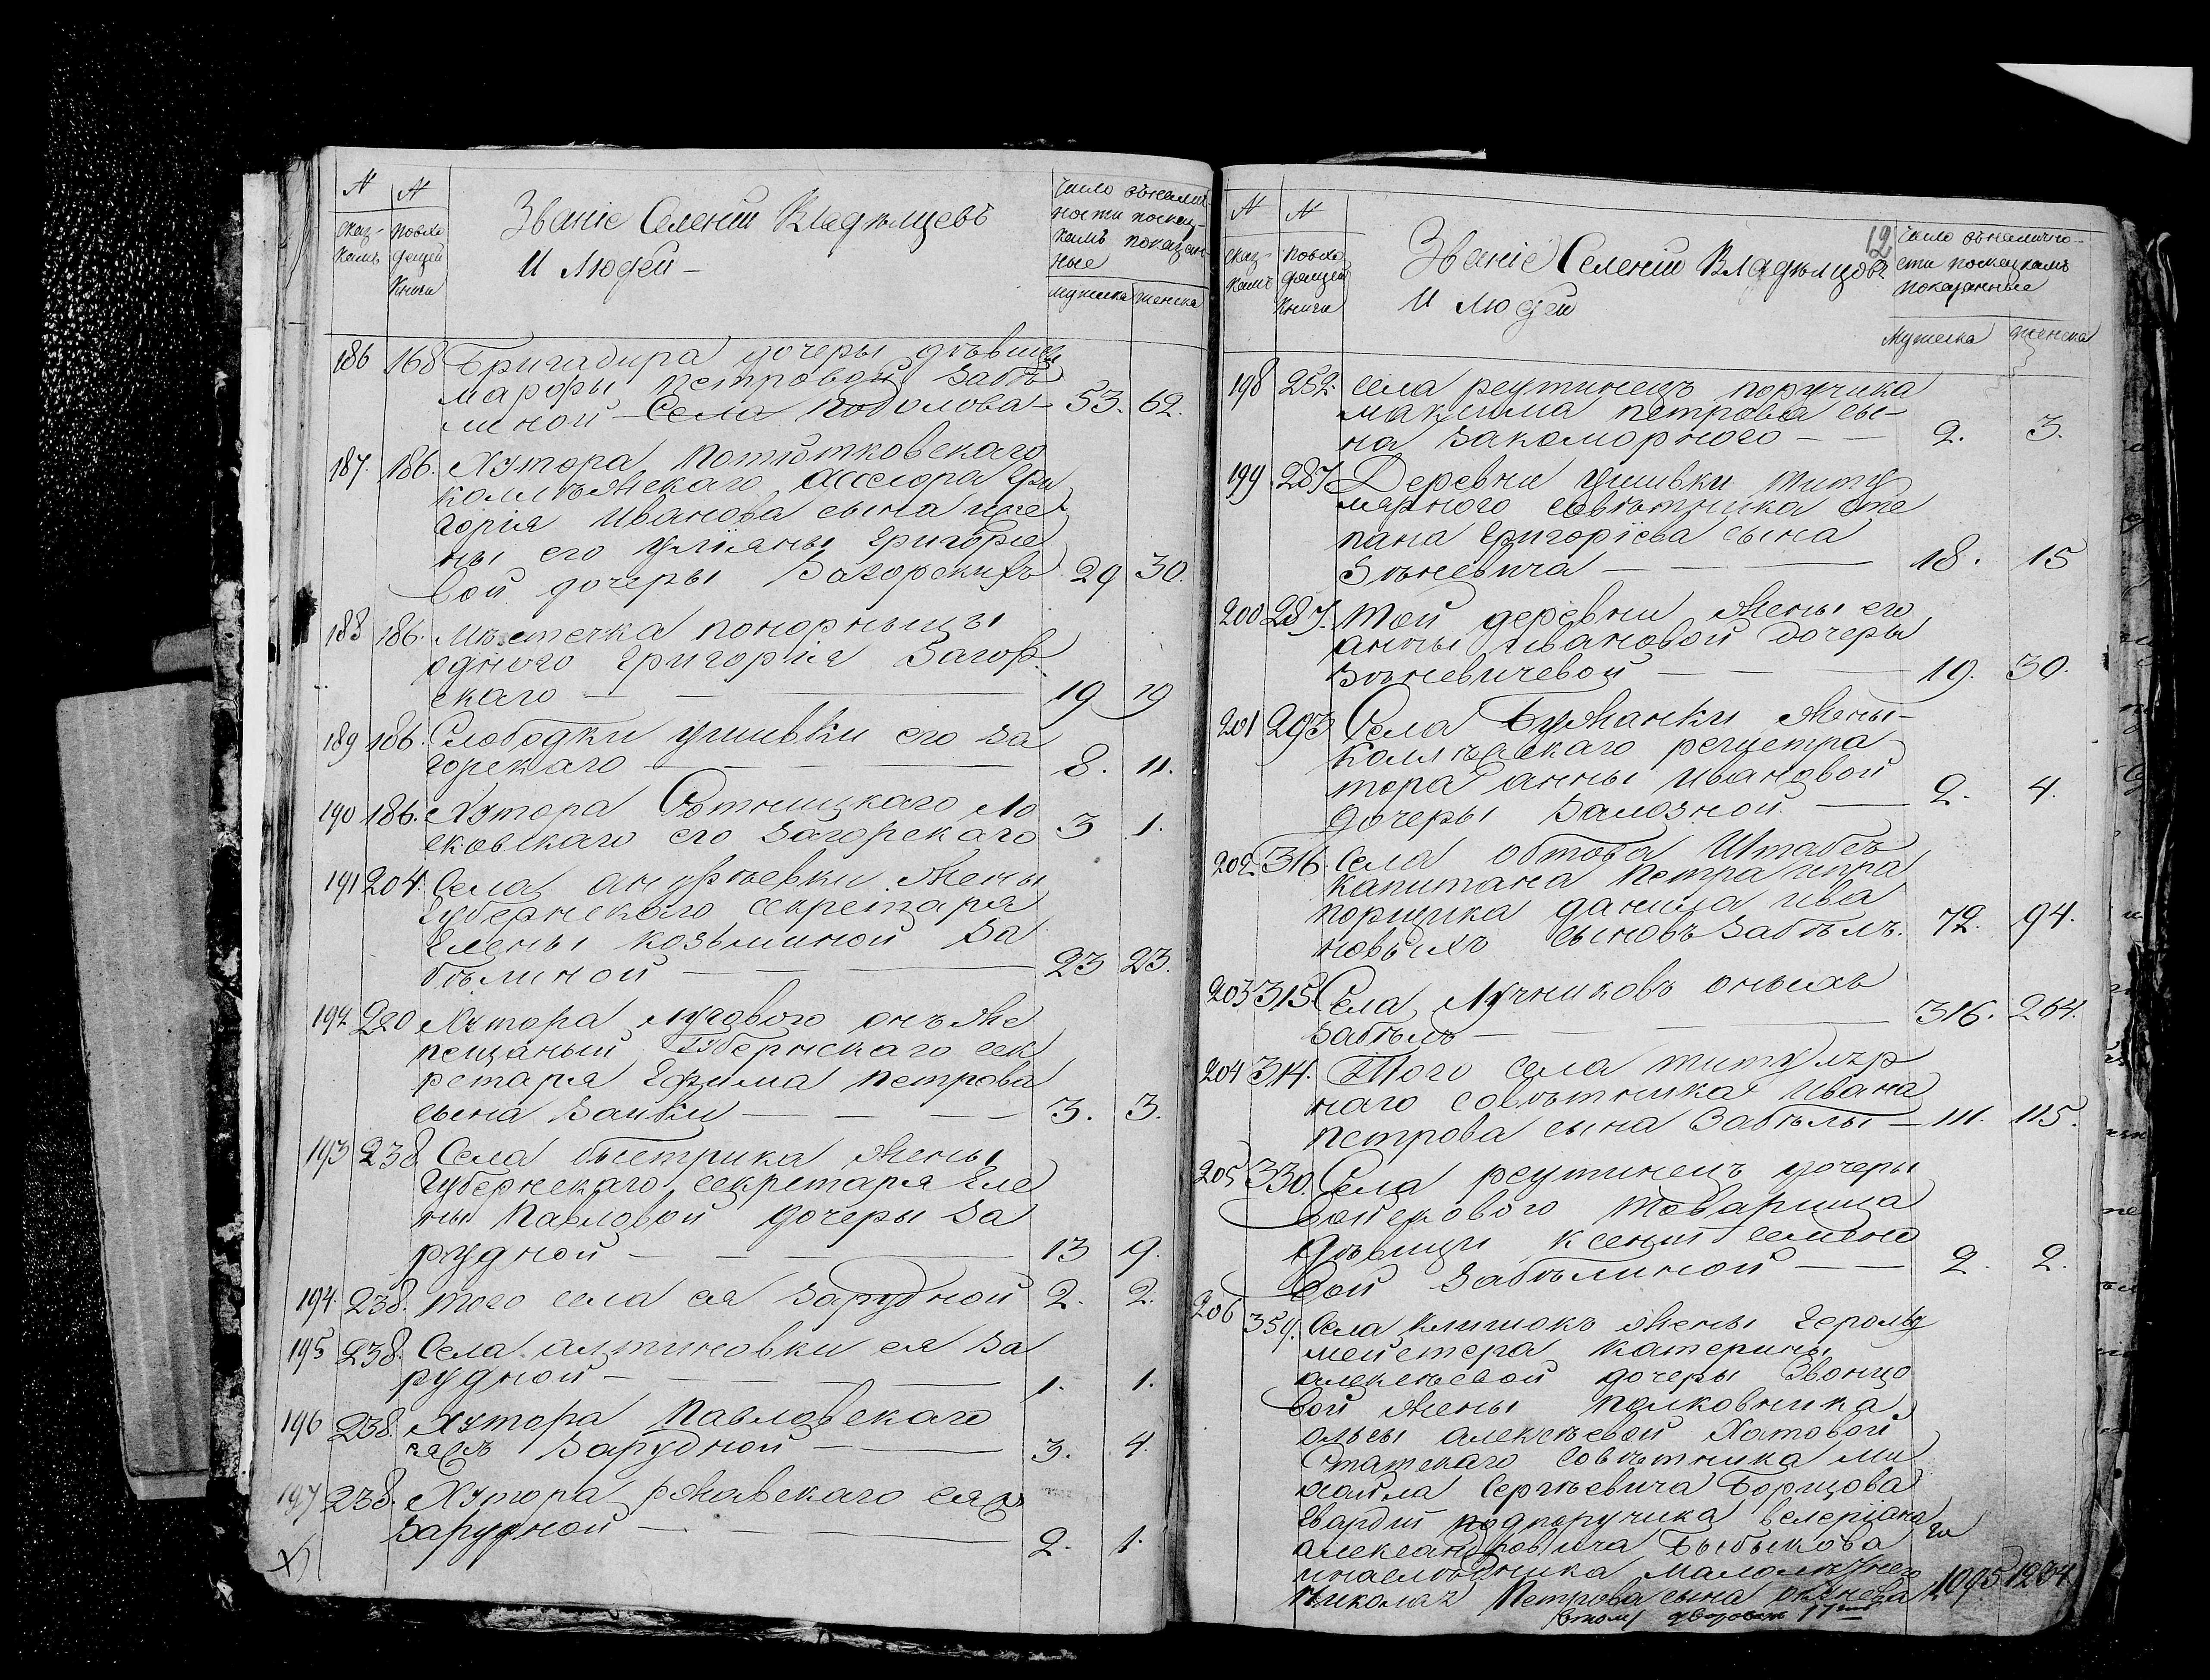 № №
сказ-
камъ
повхо
дящей
Книги
Званіе Селеній Владѣлцевъ
И Людей —
Число въналич
ности поска-
камъ показан-
ные
мужеска женска
186 168 Бригадира дочеры дѣвицы
марфы петровой Забѣ
линой — Села подолова — 53. 62.
187. 186. Хутора
коллѣжскаго Ассесора Гри
горія Иванова сына иже
ны его улияны Григорие
вой дочеры Загорскихъ 29 30.
188 186. мѣстечка понорницы
одного Григорія Загор
скаго — — — 19 19
189 186. Слободки ушивки его За
горскаго — — — 8. 11.
190 186. Хутора
его Загорскаго 3 1.
191 204. Села андрѣевки жены
Губернскаго секретаря
Елены козьминой За
бѣлиной — — — 23 23.
192 220 Хутора лугового онъ же
пещаный Губернскаго сек
ретаря Ефима петрова
сына Заики — — — 3. 3.
193 238. Села быстрика жены
Губернскаго секретаря Еле
ны Павловой дочеры За
рудной — — — 13 9.
194 238. того села ея Зарудной 2. 2.
195 238. Села алтиновки ея За
рудной — — — 1. 1.
196 238. Хутора Павловскаго
Зарудной — — 3. 4.
197 238. Хутора ржавскаго ея
Зарудной — — 2. 1.
№ №
сказ-
камъ
повхо
дящей
Книги
Званіе Селеній Владѣлцовъ
И Людей
12
Число въналично-
сти поскаскамъ
показанные
Мужеска женска
198 252. села реутинецъ поручика
максима петрова сы-
на Закоморного — — 2. 3.
199 287 Деревни ушивки титу
лярного совѣтника Сте
пана Григоріева сына
Зѣневича — — 18. 15
200 287. Той деревни жены его
анны Ивановой дочеры
Зѣневичевой — — 19. 30.
201 293 Села Бужанки жены
коллѣжскаго регистра
тора анны ивановой
дочеры Залозной — 2. 4.
202. 316. Села обтова Штабсъ
капитана петра ипра
порщика данила ива
новыхъ сыновъ Забѣлъ. 72. 94.
203 315. Села Лучниковъ оныхъ
Забѣлъ — — — 316. 264.
204 314. Того села титуляр
наго совѣтника Ивана
петрова сына Забѣлы — 111. 115.
205 330. Села реутинецъ дочеры
войскового товарища
дѣвици ксении семено
вой Забѣлиной — — 2. 2.
206 359. Села Клишокъ жены
мейстера катерины
алексѣевой дочеры Звонцо
вой жены полковника
алексѣевой Хитовой
Статскаго совѣтника ми
хайла Сергѣевича Борщова
Гвардіи подпоручика велеріана
александровича Быбикова
инаслѣдника малолѣтнего
Николая Петрова сына 1095 1204